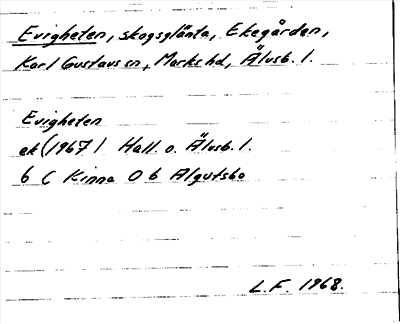 Evigheten, skogsglänta, Ekegården,
Karl Gustavs sn, Marks hd, Älvsb. l.
Evigheten
ek (1967) Hall. o. Älvsb. l.
6 C Kinna 0 b Algutsbo
L.F. 1968.